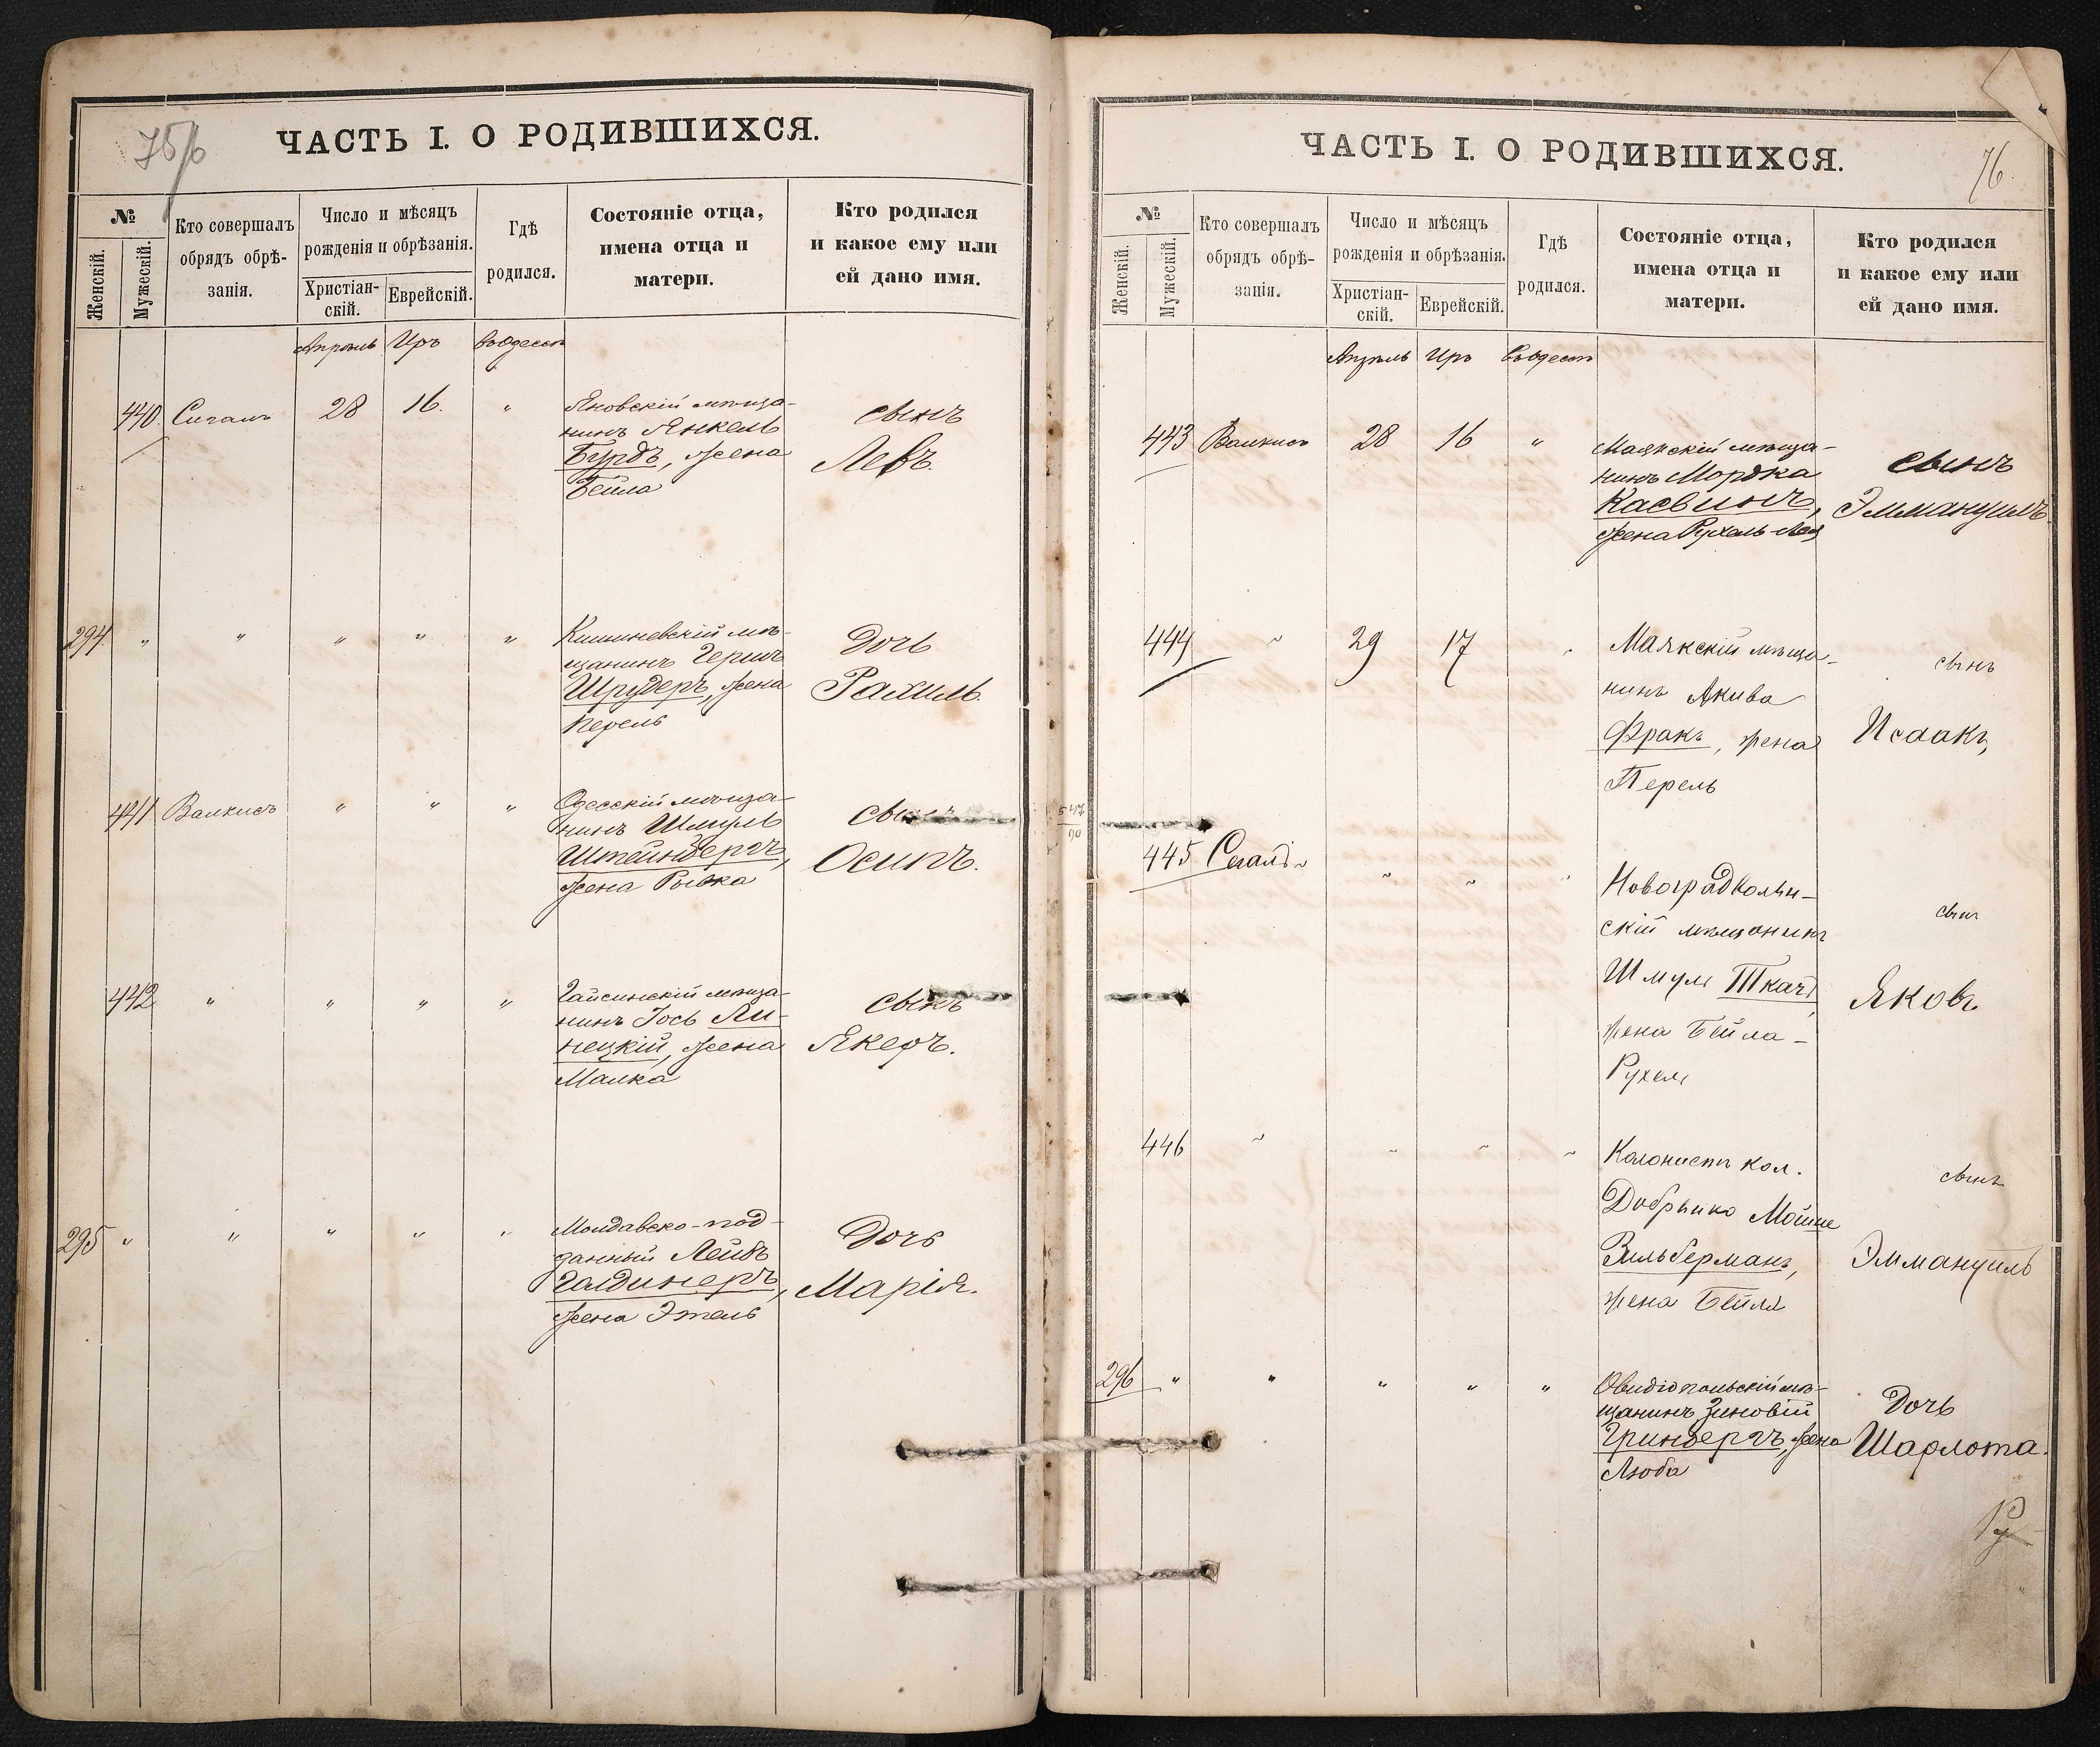 75/б
ЧАСТЬ I. О РОДИВШИХСЯ.
№
Женскій.
Мужескій.
Кто совершалъ
обрядъ обрѣ-
занія.
Число и мѣсяцъ
рожденія и обрѣзанія.
Христіан-
скій.
Еврейскій.
Гдѣ
родился.
Состояніе отца,
имена отца и
матери.
Кто родился
и какое ему или
ей дано имя.
Апрѣль Иръ въ Одессѣ
440. Сигалъ 28 16. "
Яновскій мѣща-
нинъ Янкель
Бурдъ, жена
Бейла
сынъ
Левъ.
294 " " " " "
Кишиневскій мѣ-
щанинъ Гершъ
Шрудеръ, жена
Перель
Дочь
Рахиль.
441 Валкисъ " " "
Одесскій мѣща-
нинъ Шмуль
Штейнбергъ,
жена Рывка
сынъ
Осипъ.
442 " " " "
Гайсинскій мѣща-
нинъ Іось Ли-
нецкій, жена
Малка
сынъ
Якеръ.
295 " " " " "
Молдавско-под-
данный Лейбъ
Галдинеръ,
жена Этель
Дочь
Марія.
76
ЧАСТЬ I. О РОДИВШИХСЯ.
№
Женскій.
Мужескій.
Кто совершалъ
обрядъ обрѣ-
занія.
Число и мѣсяцъ
рожденія и обрѣзанія.
Христіан-
скій.
Еврейскій.
Гдѣ
родился.
Состояніе отца,
имена отца и
матери.
Кто родился
и какое ему или
ей дано имя.
Апрѣль Иръ въ Одессѣ
443 Валкисъ 28 16 "
Маякскій мѣща-
нинъ Мордка
Касвинъ,
жена Рухель-Лея
сынъ
Эммануилъ.
444 " 29 17
Маякскій мѣща-
нинъ Акива
Фракъ, жена
Перель
сынъ
Исаакъ
445 Сегалъ " "
Новоградволын-
скій мѣщанинъ
Шмуль Ткачъ,
жена Бейла-
Рухель
сынъ
Яковъ
446 " " " "
Колонистъ кол.
Добрынко Мойше
Зильберманъ,
жена Бейла
сынъ
Эммануилъ
296 " " " " "
Овидіопольскій мѣ-
щанинъ Зиновій
Гринбергъ, жена
Люба
Дочь
Шарлота.